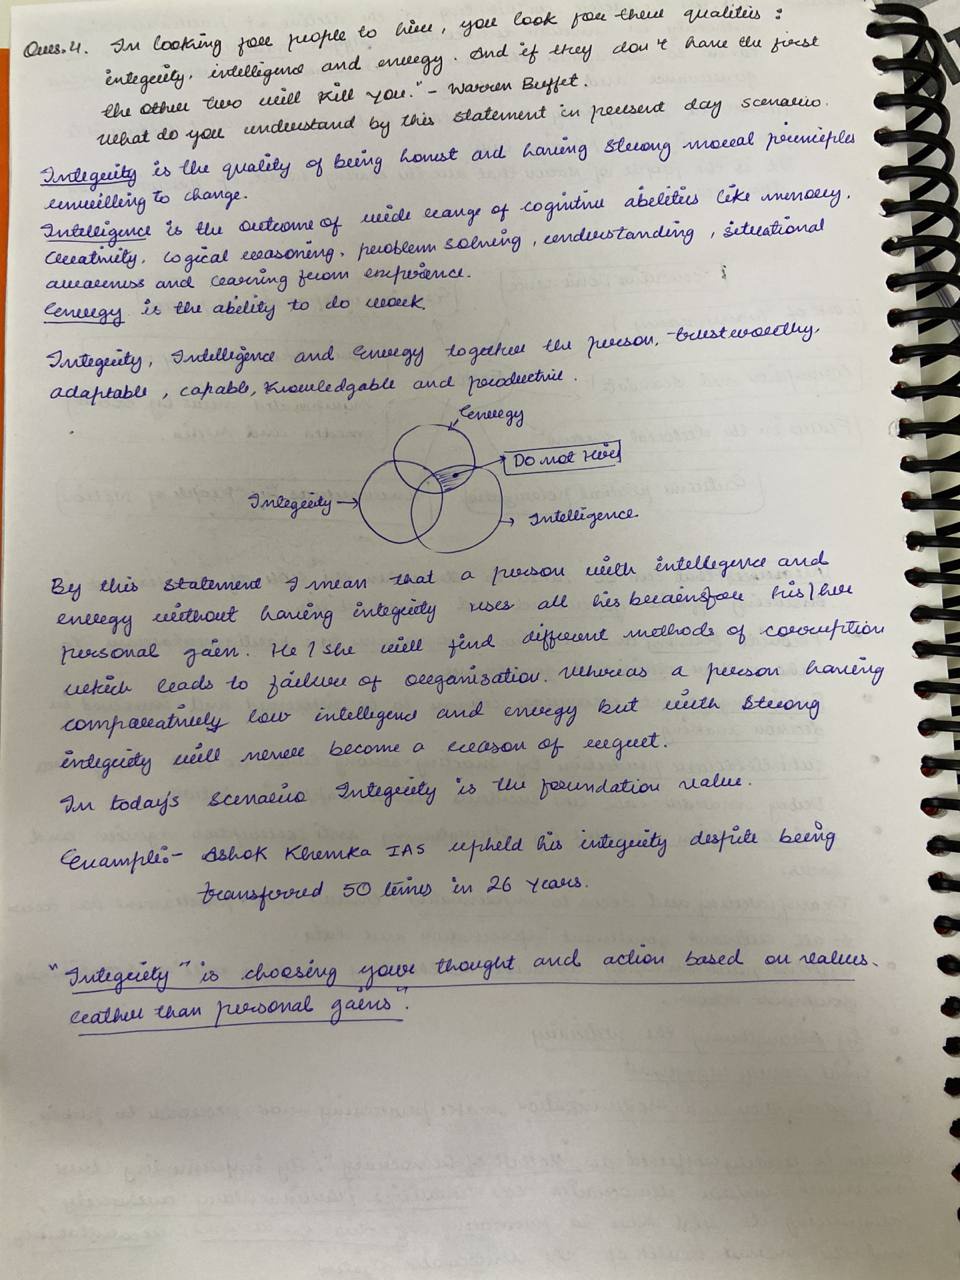 Ques.4. In looking for people to hire, you look for three qualities :
integrity, intelligence and energy. And if they don't have the first
the other two will kill you." - Warren Buffet.
What do you understand by this statement in present day scenario.
Integrity is the quality of being honest and having strong moral principles
unwilling to change.
Intelligence is the outcome of wide range of cognitive abilities like memory,
creativity, logical reasoning, problem solving, understanding, situational
awareness and learning from experience.
Energy is the ability to do work.
Integrity, Intelligence and Energy together the person, trustworthy,
adaptable, capable, knowledgable and productive.
Energy
Do not Hire
Integrity
Intelligence
By this statement I mean that a person with intelligence and
energy without having integrity uses all his brains for his/her
personal gain. He/she will find different methods of corruption
which leads to failure of organisation. Whereas a person having
comparatively low intelligence and energy but with strong
integrity will never become a reason of regret.
In today's scenario Integrity is the foundation value.
Example:- Ashok Khemka IAS upheld his integrity despite being
transferred 50 times in 26 years.
"Integriety" is choosing your thought and action based on values.
rather than personal gains".